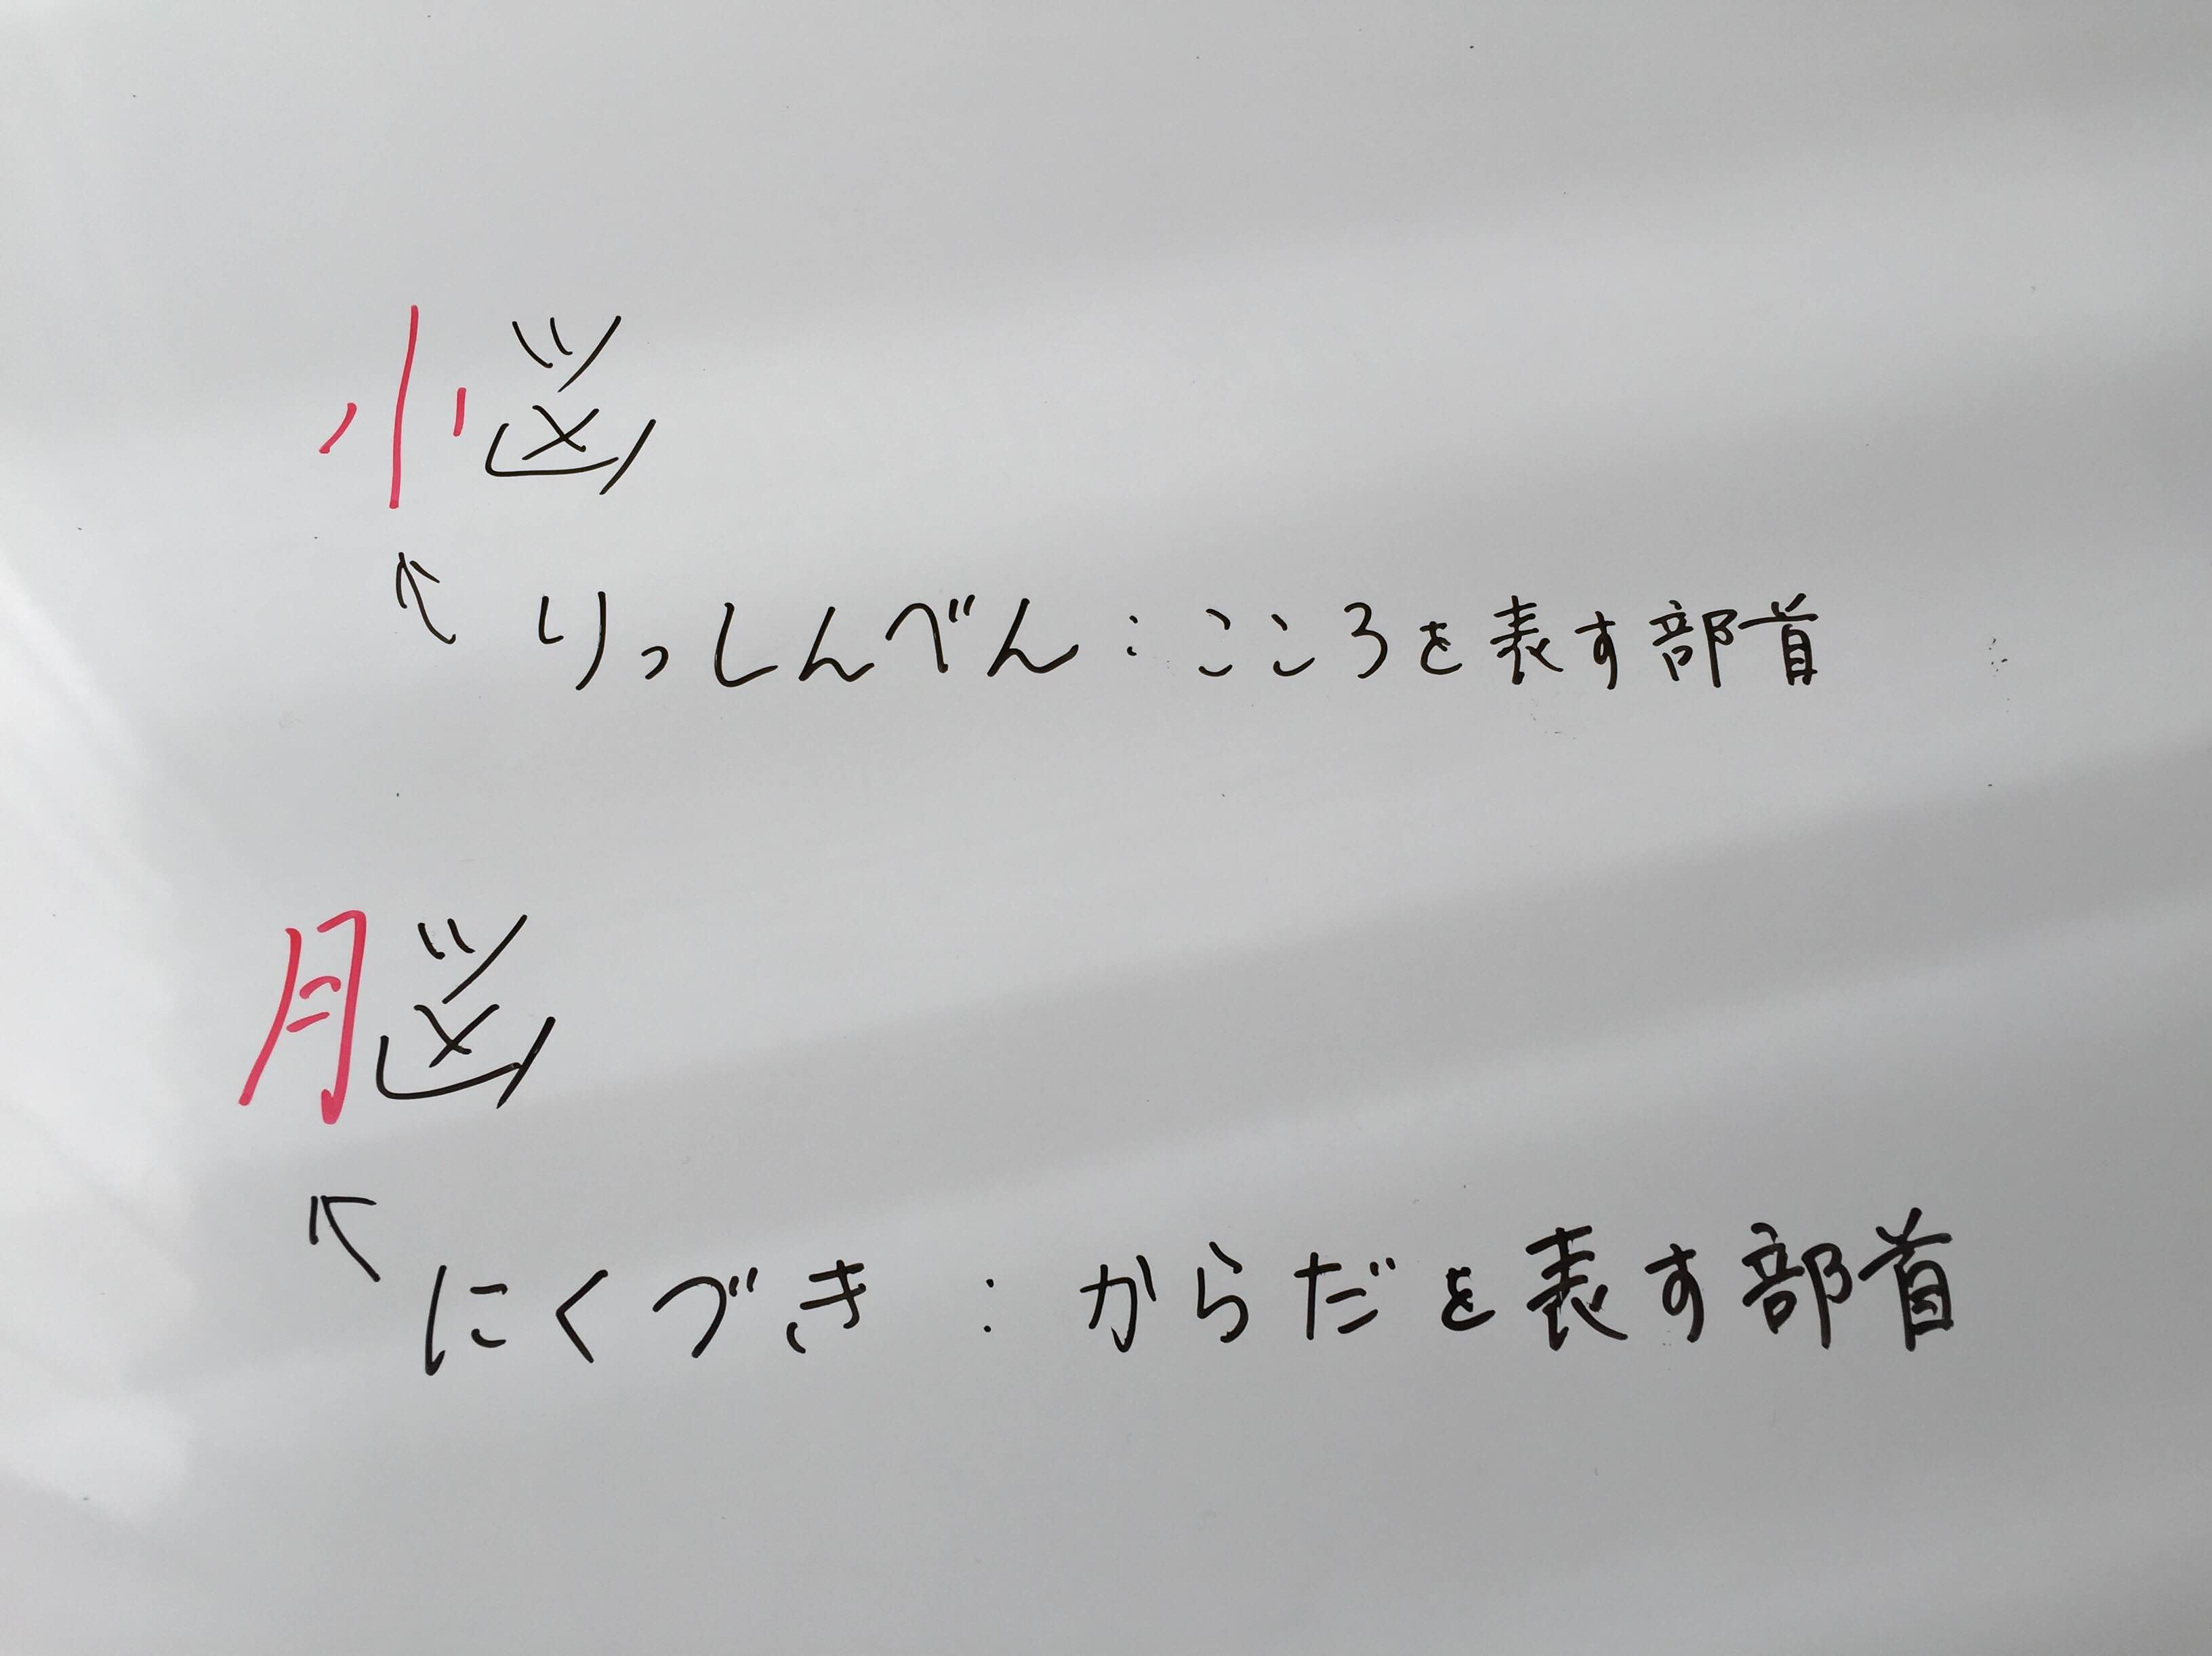 悩
↖りっしんべん:こころを表す部首
脳
↖にくづき:からだを表す部首